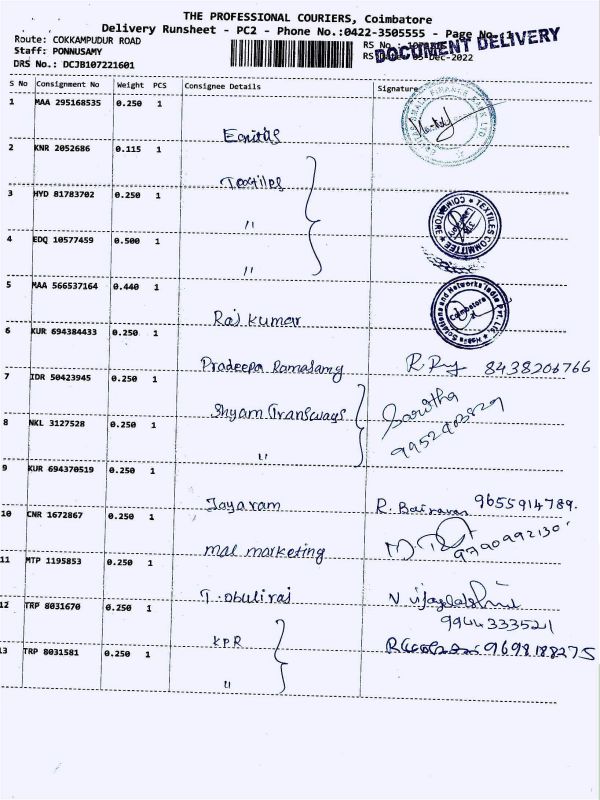 THE PROFESSIONAL COURIERS, Coimbatore
Delivery Runsheet - PC2 - Phone No.:0422-3505555 - Page No.
Route: COKKAMPUDUR ROAD
RS No.
DOCUMENT DELIVERY
Staff: PONNUSAMY
-Dec-2022
DRS No.: DCJB107221601
S No Consignment No Weight PCS Consignee Details Signature
1 MAA 295168535 0.250 1
2 KNR 2052686 0.115 1
Textiles
3 HYD 81783702 0.250 1
"
TEXTILES COMMITTEE COIMBATORE
4 EDQ 10577459 0.500 1
"
5 MAA 566537164 0.440 1
Raj Kumar
Networks India Pvt. Ltd.
Coimbatore
6 KUR 694384433 0.250 1
Pradeepa Ramasamy 8438206766
7 IDR 50423945 0.250 1
Shyam Transways Saritha
8 NKL 3127528 0.250 1
"
9 KUR 694370519 0.250 1
Jayaram R. Bairavan 9655914789.
10 CNR 1672867 0.250 1
mal marketing 9790992130
11 MTP 1195853 0.250 1
T. obuliraj
12 TRP 8031670 0.250 1
9944333521
KPR 9698188275
13 TRP 8031581 0.250 1
"